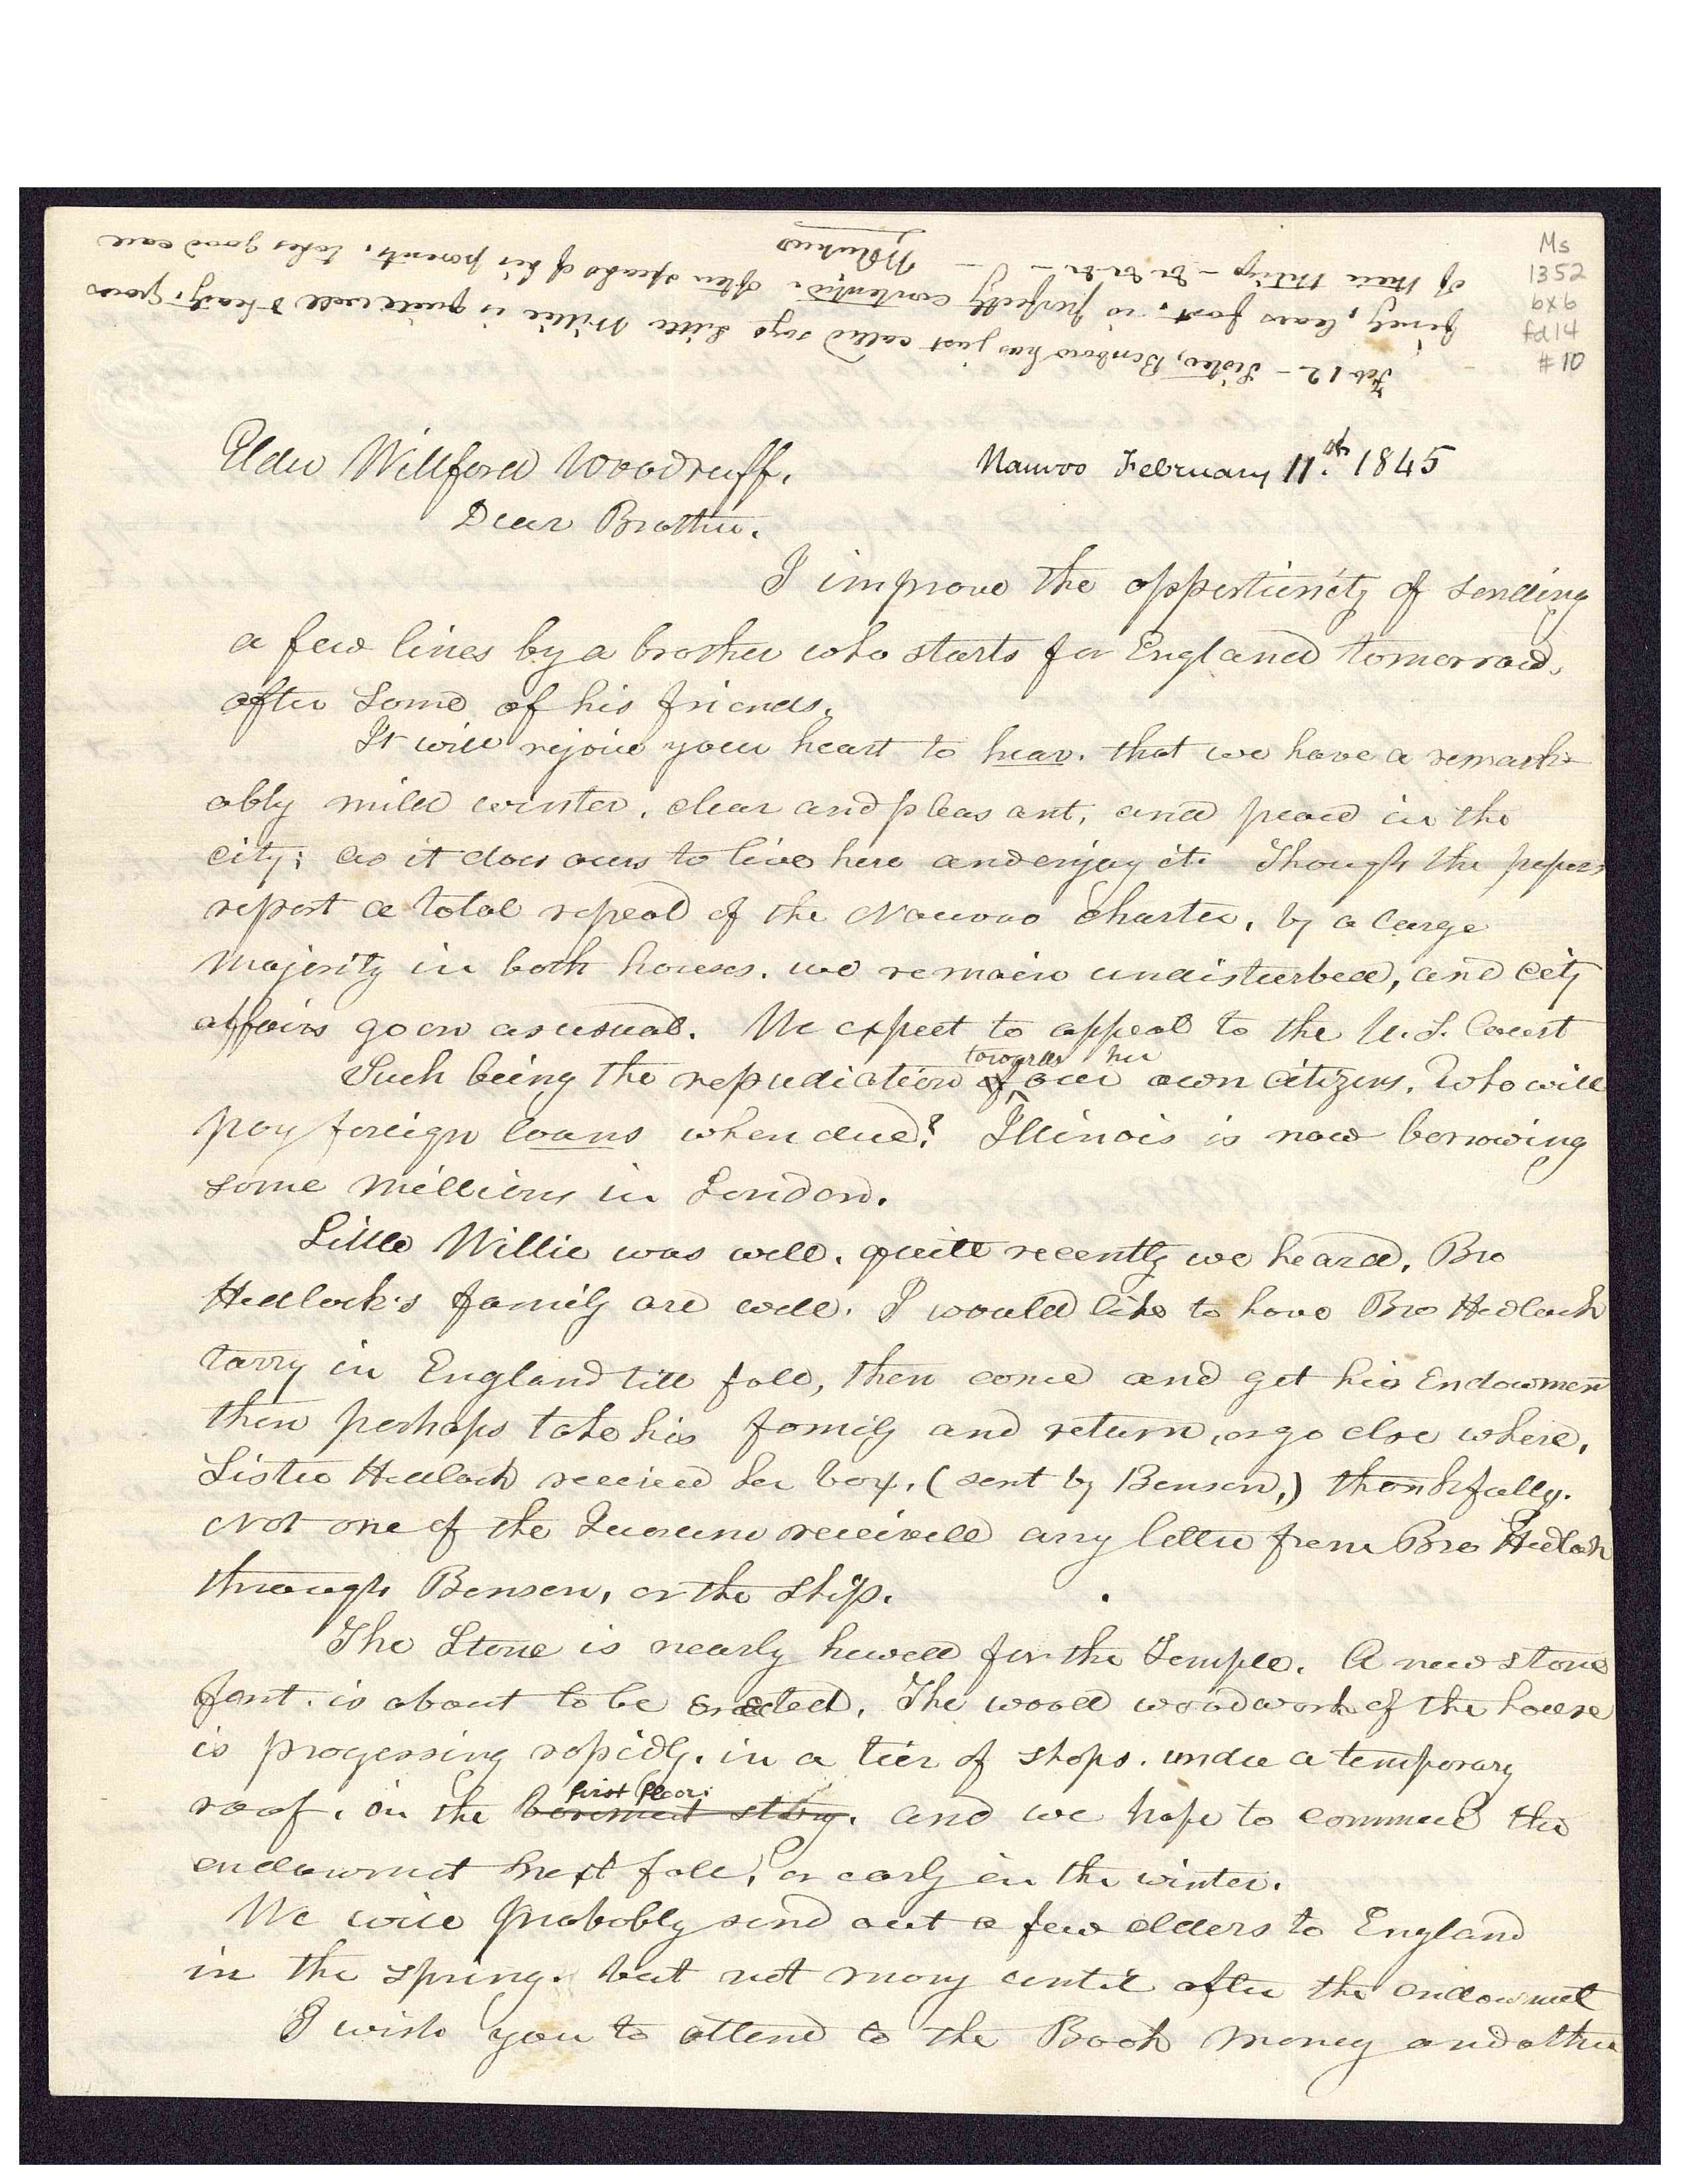 Ms
1352
bx6
fd 14
#10
Feb 12 - Sister, Benbow has just called says Little Willie is quite well & heaty. grows
finely, lears fast, is perfectly contented. often speaks of his parents, takes good care
of their things - &c &c &c - J WRichards
Elder Willford Woodruff. Nauvoo February 11.th 1845
Dear Brother.
I improve the oppertunity of sending
a few lines by a brother who starts for England tomorrow,
after some of his friends.
It will rejoice your heart to hear. that we have a remark-
ably mild winter, clear and pleasant, and peace in the
city; as it does ours to live here and enjoy it. Though the papers
report a total repeal of the Nauvoo Charter, by a large
Majority in both houses. we remain undisturbed, and City
affairs go on as usual. We expect to appeal to the U.S. Court
towards her
Such being the repudiation of our own citizens, Who will
pay foreign loans when due? Illinois is now borrowing
some Millions in London.
Little Willie was well. quite recently we heard, Bro
Hedlock's family are well. I would like to have Bro Hedlock
tarry in England till fall, then come and get his Endowmen
then perhaps take his family and return, or go else where,
Sister Hedlock received her box, (sent by Benson,) thankfully.
Not one of the Quorum received any letter from Bro Hedlock
through Benson, or the Ship.
The Stone is nearly hewed for the Temple. A new stone
font. is about to be erected. The wood woodwork of the house
is progessing rapidly. in a tier of shops. under a temporary
first floor.
roof. on the basement story. and we hope to commence the
endowment next fall, or early in the winter.
We will probably send out a few elders to England
in the spring. but not many until after the endowment
I wish you to attend to the Book Money and other